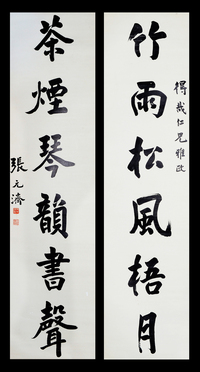 竹雨松風梧月
得哉仁兄雅政
茶煙琴韻書聲
張元濟